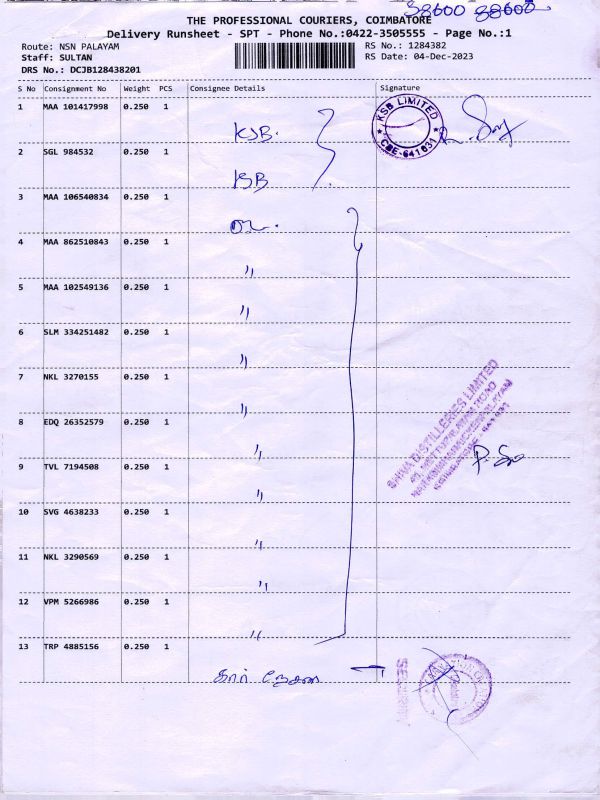 58600 88600
THE PROFESSIONAL COURIERS, COIMBATORE
Delivery Runsheet - SPT - Phone No.:0422-3505555 - Page No.:1
Route: NSN PALAYAM RS No.: 1284382
Staff: SULTAN RS Date: 04-Dec-2023
DRS No.: DCJB128438201
S No Consignment No Weight PCS Consignee Details Signature
1 MAA 101417998 0.250 1
KSB. KSB LIMITED CBE-641631
2 SGL 984532 0.250 1
KSB
3 MAA 106540834 0.250 1
4 MAA 862510843 0.250 1
"
5 MAA 102549136 0.250 1
"
6 SLM 334251482 0.250 1
"
7 NKL 3270155 0.250 1
"
8 EDQ 26352579 0.250 1
"
SHIVA DISTILLERIES LIMITED
9 TVL 7194508 0.250 1
"
10 SVG 4638233 0.250 1
"
11 NKL 3290569 0.250 1
"
12 VPM 5266986 0.250 1
"
13 TRP 4885156 0.250 1
SECURITY